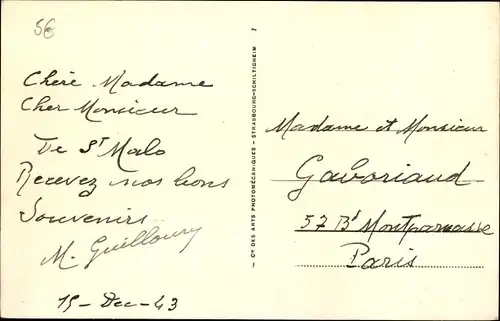 5€
Chère Madame
Cher Monsieur
De St Malo
Recevez nos bons
Souvenirs
M. Guilloury
15 - Dec - 43
— Cie DES ARTS PHOTOMÉCANIQUES - STRASBOURG-SCHILTIGHEIM
Madame et Monsieur
Gaboriaud
57 Bd Montparnasse
Paris